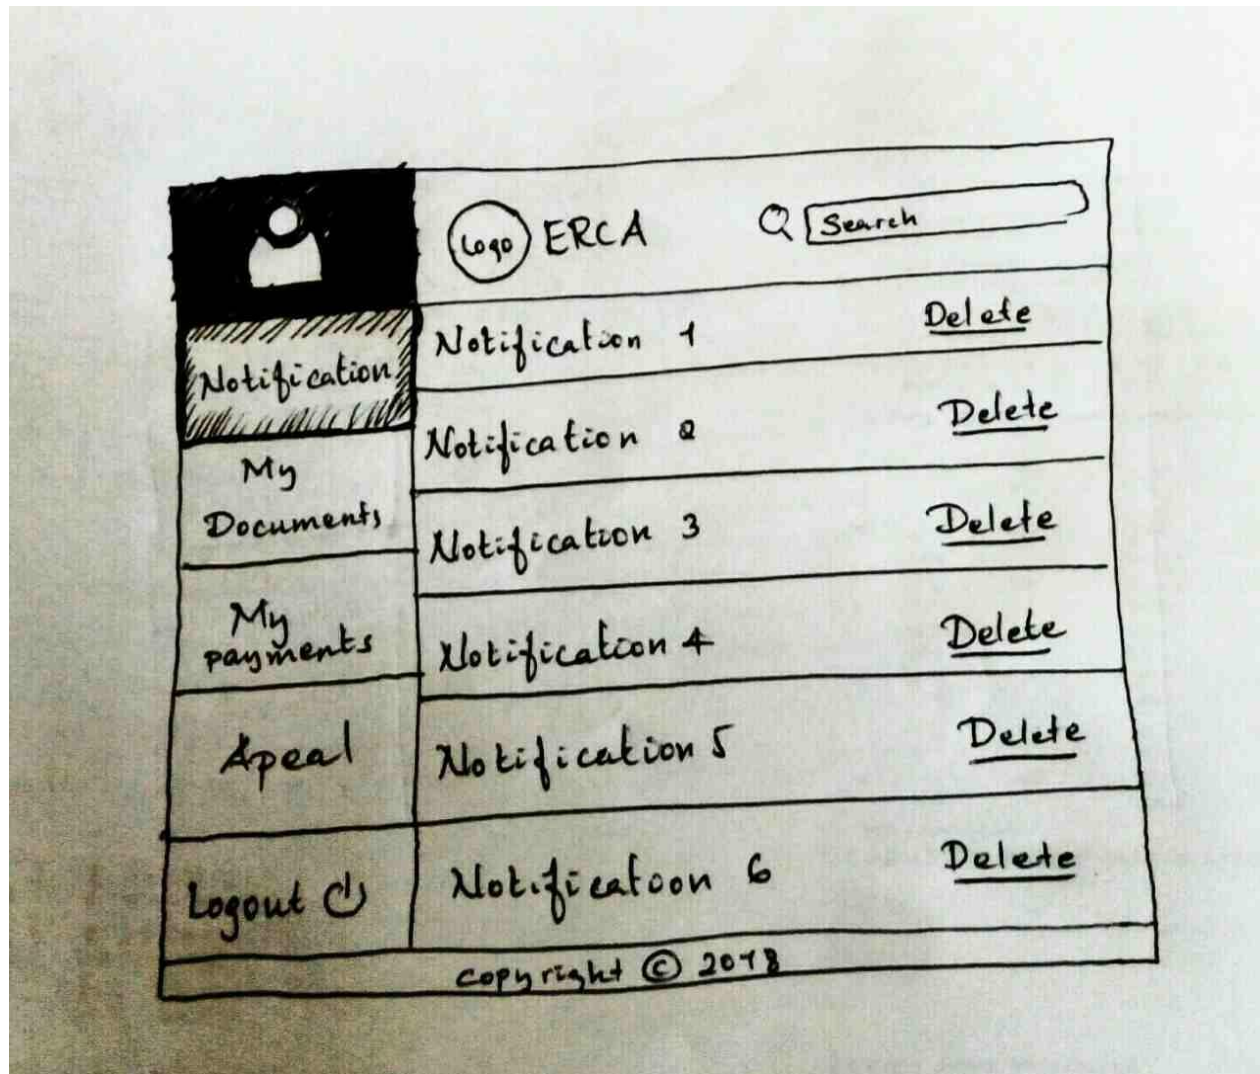 Logo ERCA Search
Notification
My
Documents
My
payments
Apeal
Logout
Notification 1 Delete
Notification 2 Delete
Notification 3 Delete
Notification 4 Delete
Notification 5 Delete
Notificatoon 6 Delete
copyright © 2018